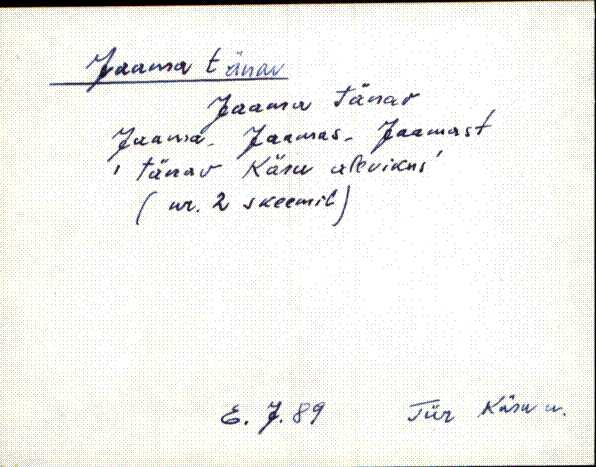 Jaama tänav
Jaama Tänav
Jaama - Jaamas - Jaamast
'tänav Käru alevikus'
(nr. 2 skeemil)
E. J. 89 Tür Käru u.